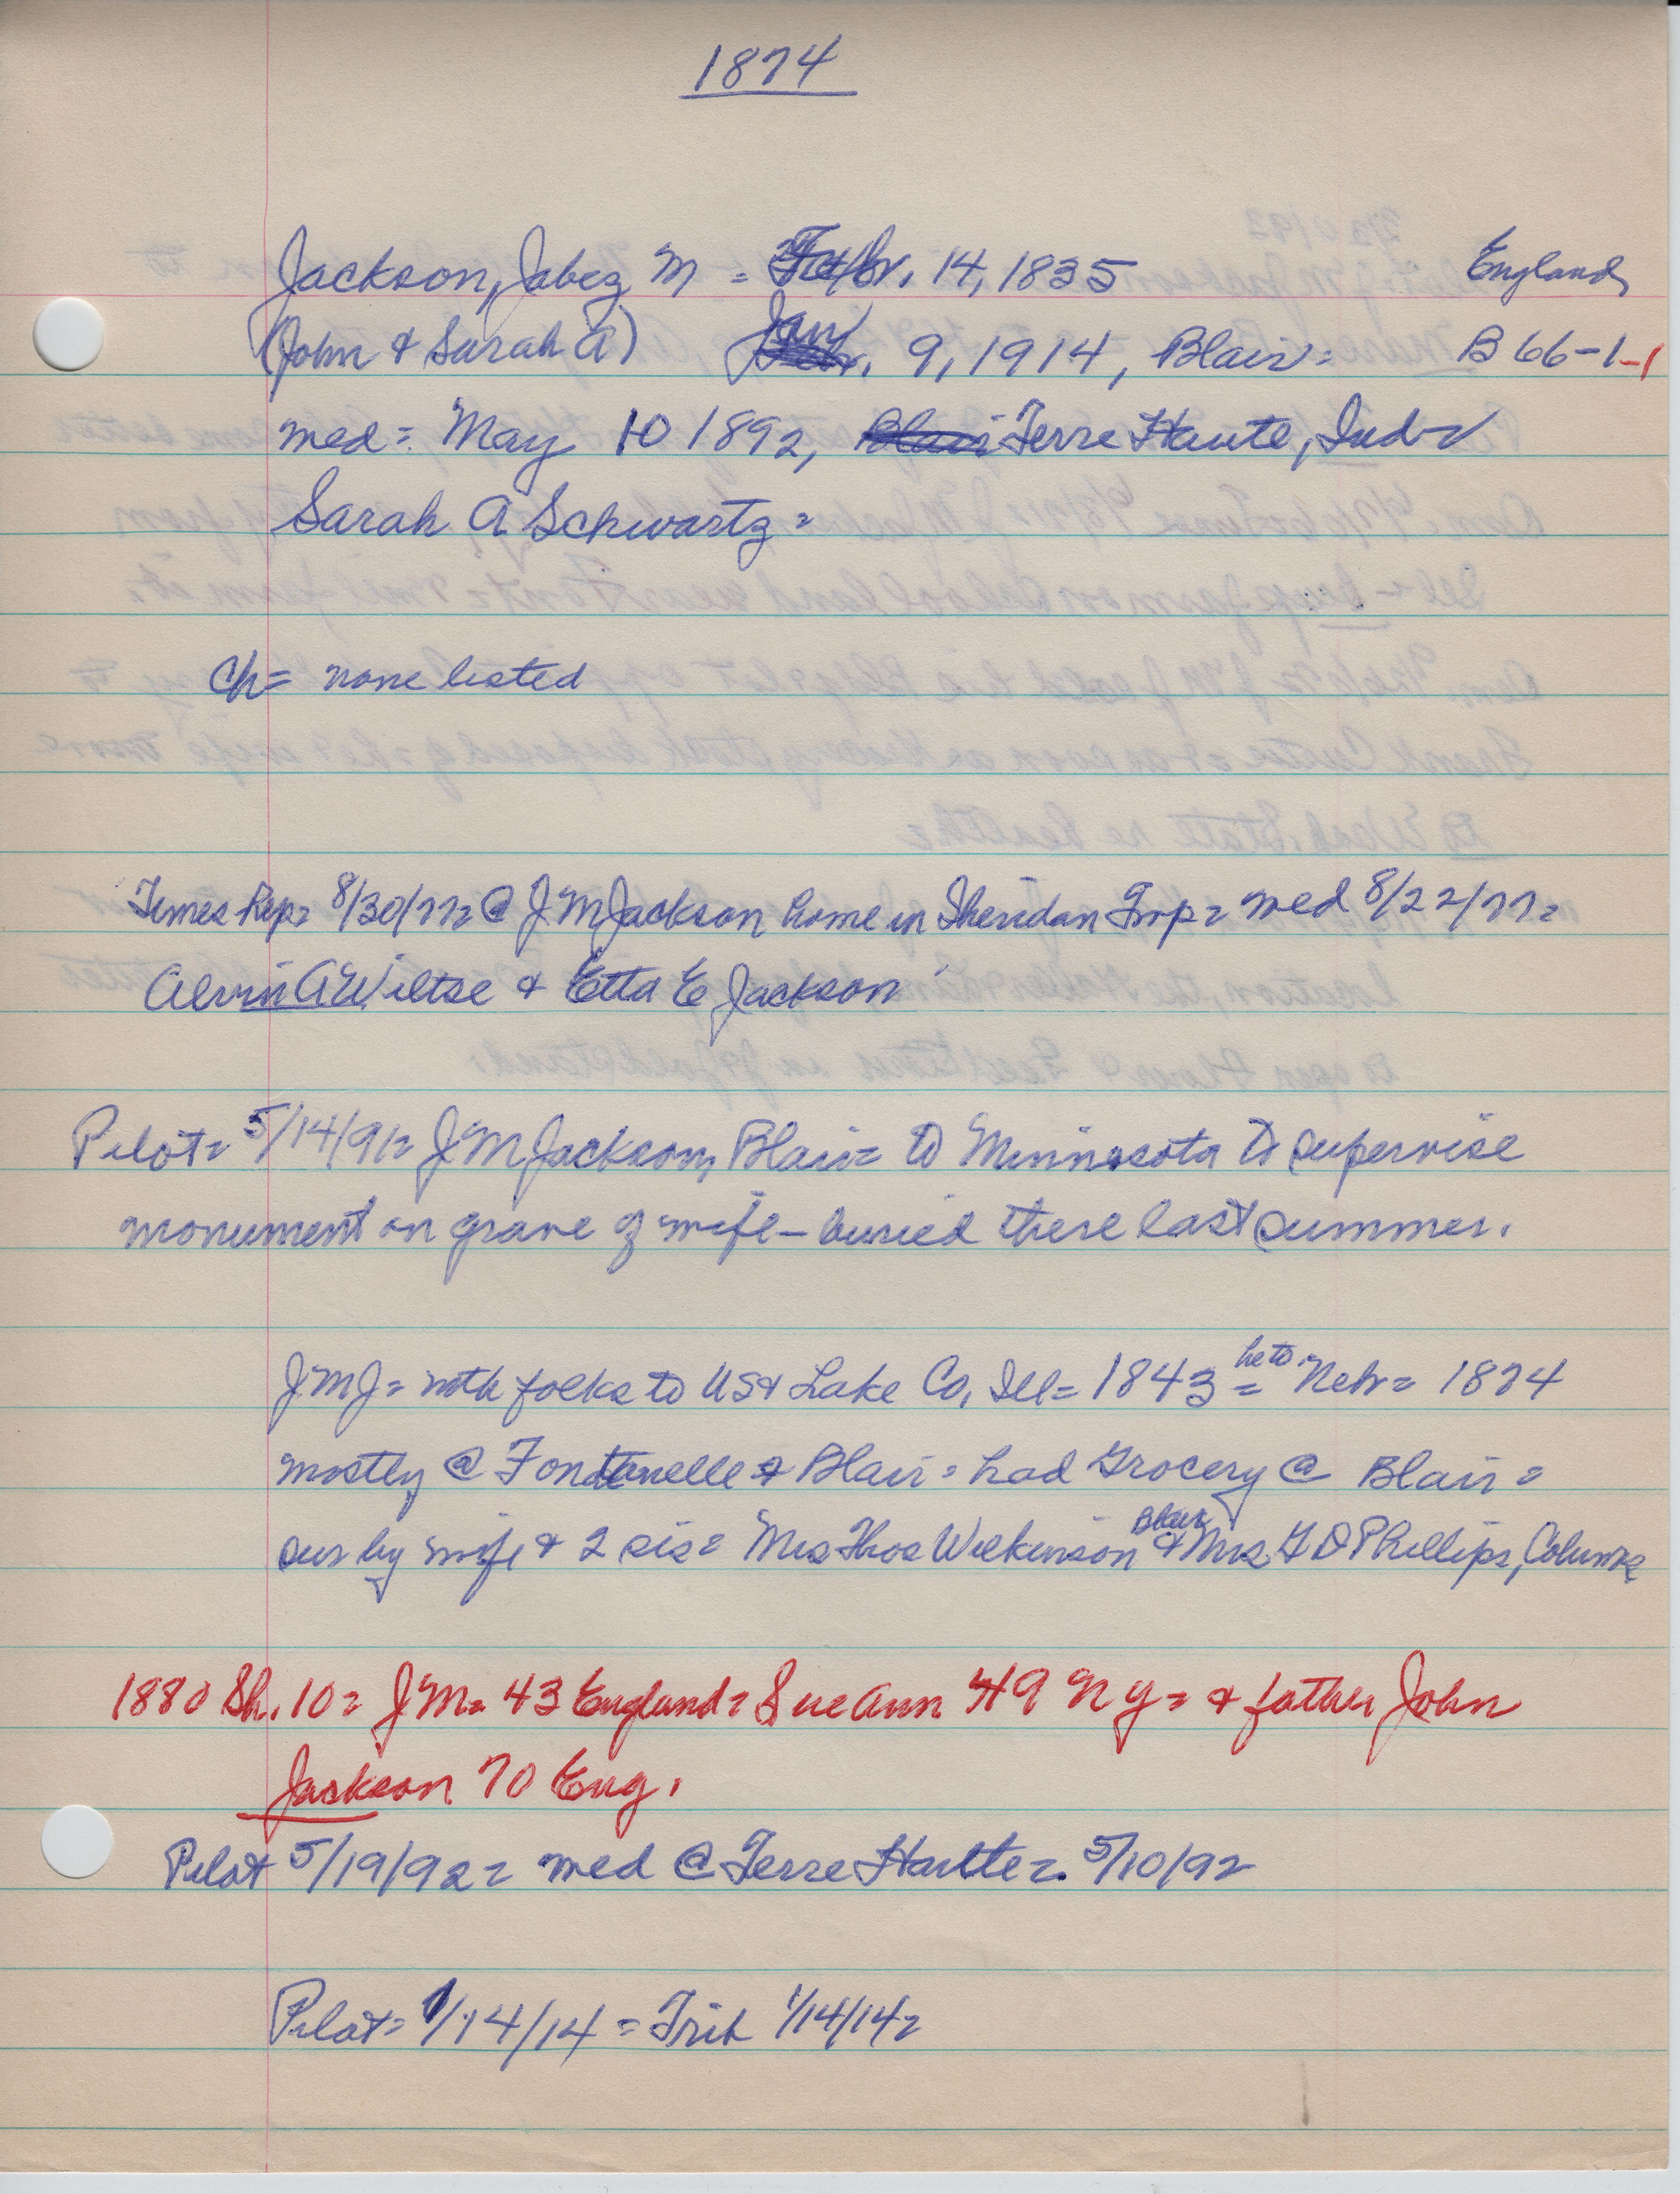 1874
Jackson, Jabez M = Febr. 14, 1835 England,
(John & Sarah A) Jan. 9, 1914, Blair= B 66-1-1
med= May 10 1892, Terre Haute, Ind=
Sarah A Schwartz=
Ch= none listed
Times Rep= 8/30/77= @ J M Jackson home in Sheridan Twp= med 8/22/77=
Alvin A Wiltse & Etta E Jackson
Pilot= 5/14/91= J M Jackson, Blair= to Minnesota to supervise
monument on grave of wife - buried there last summer.
JMJ= with folks to US & Lake Co, Ill= 1843= he to Nebr= 1874
mostly @ Fontanelle & Blair= had Grocery @ Blair=
sur by wife & 2 sis= Mrs Thos Wilkinson Blair & Mrs G D Phillips, Columbus
1880 Sh. 10= JM= 43 England= Sue Ann 49 NY= & father John
Jackson 70 Eng.
Pilot 5/19/92= med @ Terre Haute= 5/10/92
Pilot= 1/14/14= Trib 1/14/14=